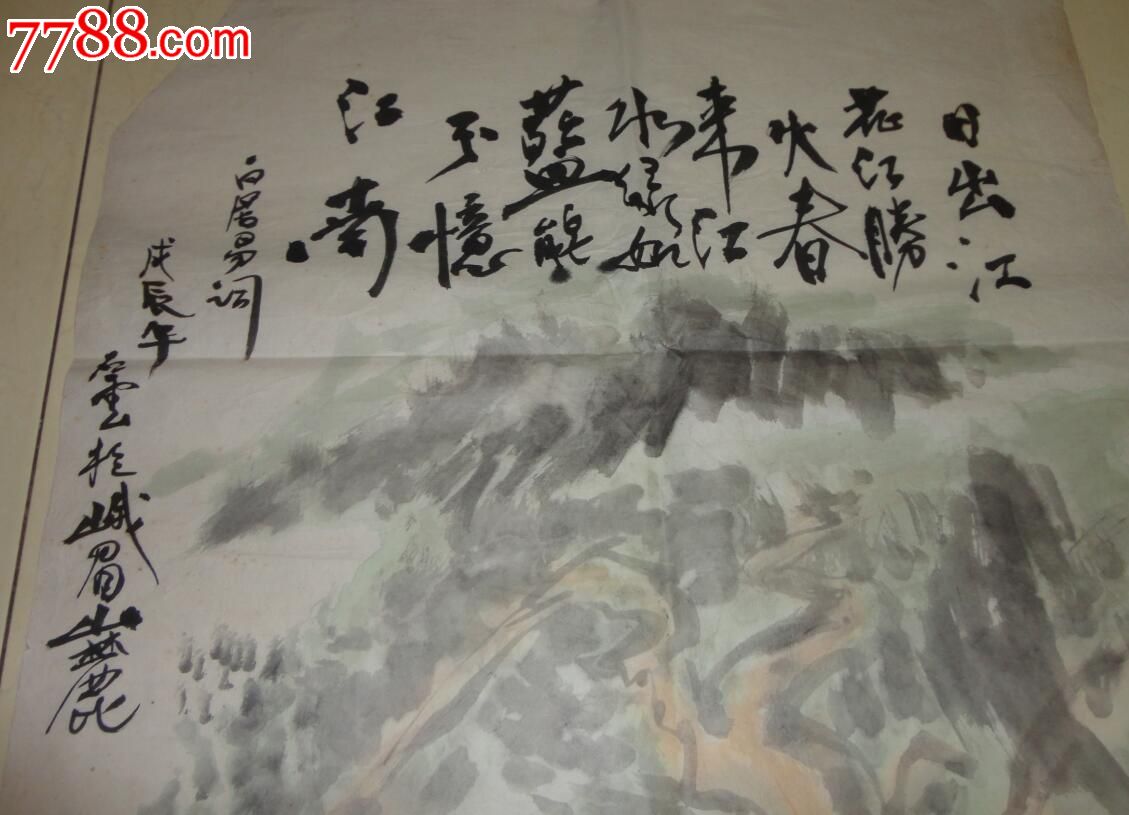 7788.com
日出江
花江勝
火春
来江
水绿如
藍能
不憶
江南
白居易词
戊辰年
雲於峨眉山麓